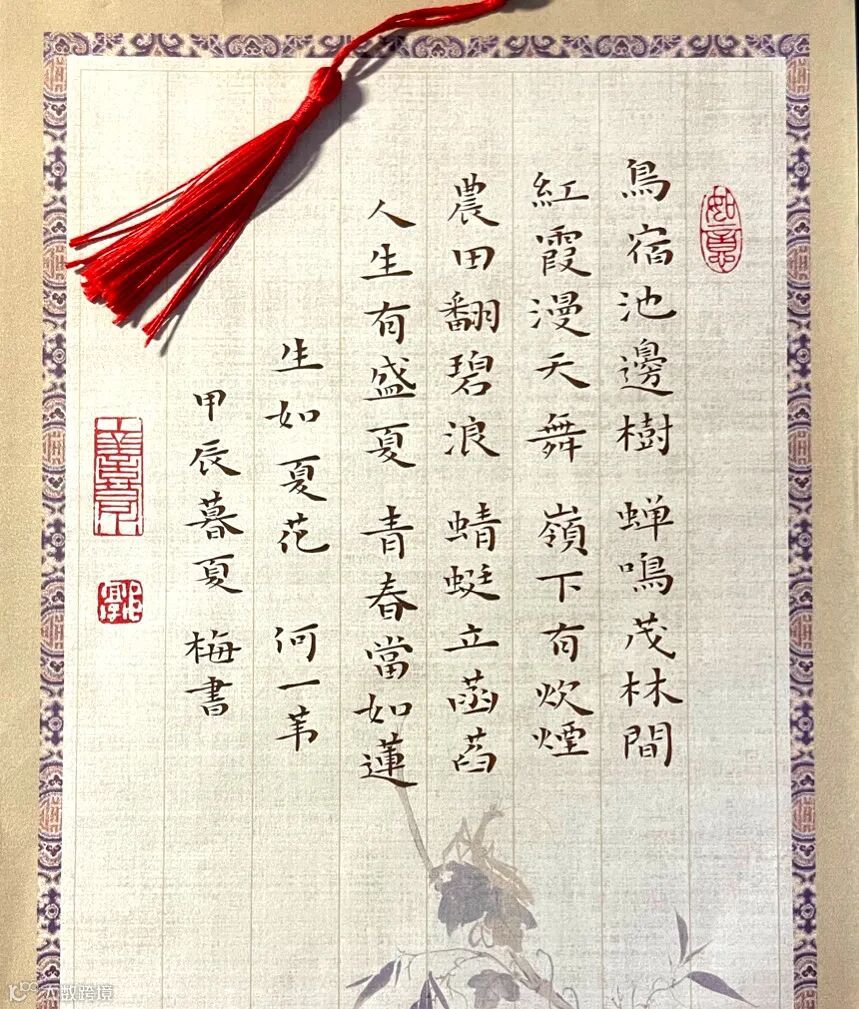 如意
鳥宿池邊樹 蝉鳴茂林間
紅霞漫天舞 嶺下有炊煙
農田翻碧浪 蜻蜓立菡萏
人生有盛夏 青春當如蓮
生如夏花 何一苇
甲辰暮夏 梅書
大数跨境